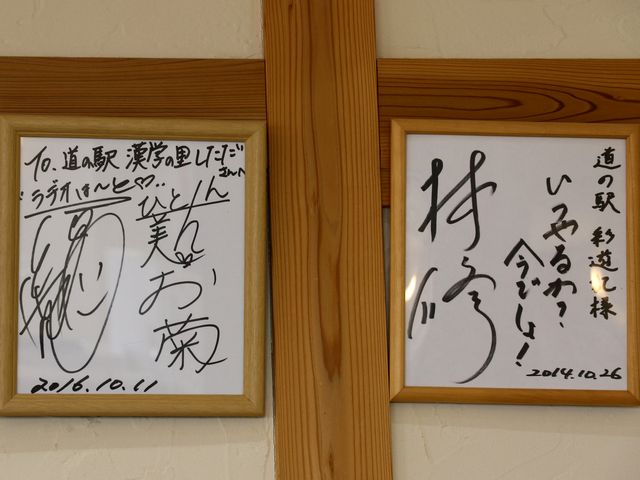 To. 道の駅 漢学の里しただ
さんへ
ラジオは〜と♡
ひとりん
美人
お菊
2016.10.11
道の駅 彩遊記様
いつやるか?
今でしょ!
林修
2014.10.26